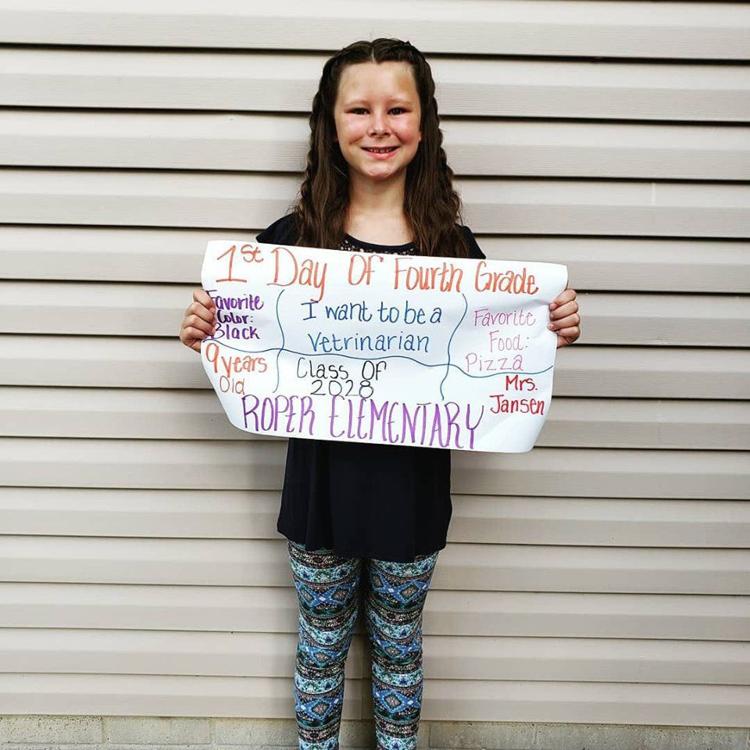 1st Day Of Fourth Grade
Favorite
Color:
Black
I want to be a
Vetrinarian
Favorite
Food:
Pizza
9 years
Old
Class Of
2028
Mrs.
Jansen
ROPER ELEMENTARY